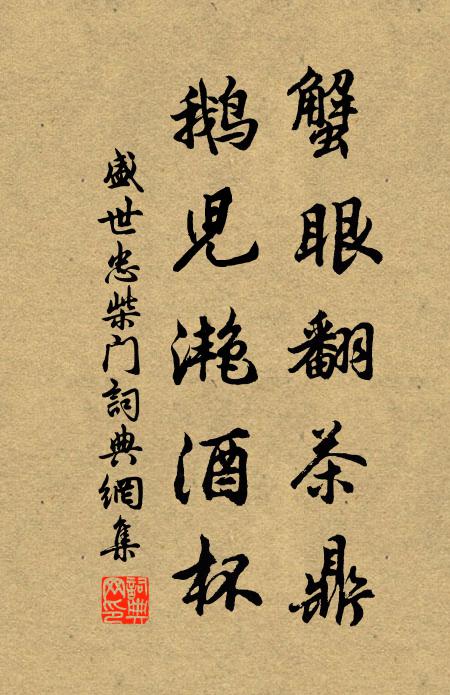 蟹眼翻茶鼎
鵝兒灔酒杯
盛世忠柴门詞典網集
詞典网印